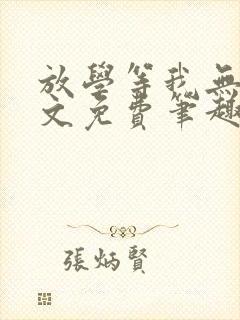 放學等我無
文免費筆趣
張炳賢